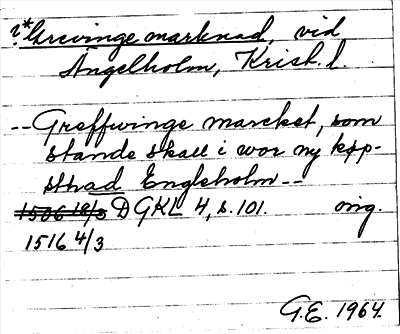 ?*Grevinge marknad, vid
Ängelholm, Krist. l.
-- Greffwinge marcket, som
stande skall i wor ny køp-
sthad Engleholm --
1506 18/3 DGKL 4, s. 101. orig.
1516 4/3
G.E. 1964.